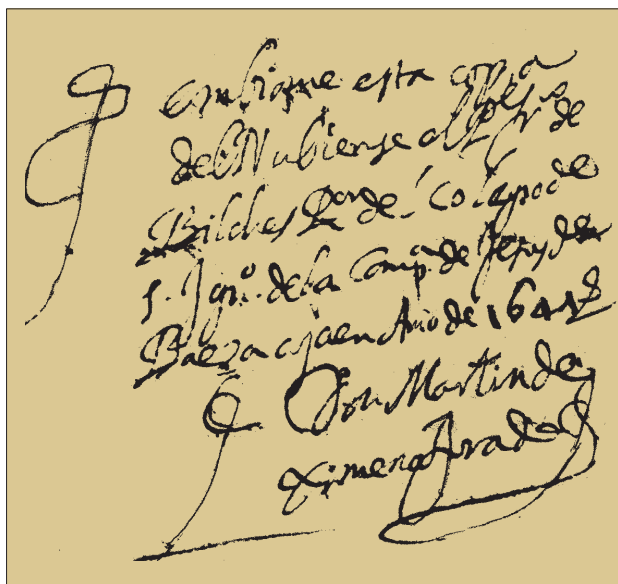 Embiaue esta copia
del Nubiense al Pe fr. de
Bilches Ror del Colegio de
S. Igno. de la Compa. de Jesus de
Baeza a jaen Año de 1644
Don Martin de
Ximena Jurado